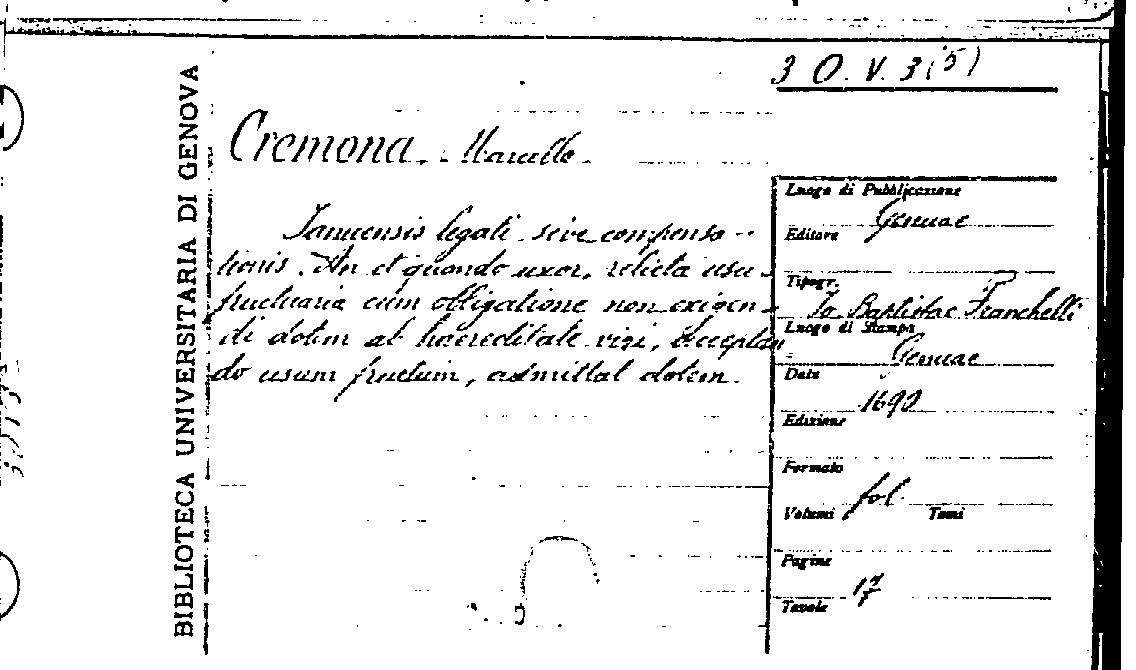 3 O. V. 3(5)
BIBLIOTECA UNIVERSITARIA DI GENOVA
Cremona Marcello
Januensis legati sive compensa-
tionis. An et quando uxor, relicta usu-
fructuaria cum obligatione non exigen-
di dotem ab haereditate viri, acceptan
do usum fructum, admittat dotem.
Luogo di Pubblicazione
Genuae
Editore
Tipogr.
Jo Baptistae Franchelli
Luogo di Stampa
Genuae
Data
1690
Edizione
Formato
fol.
Volumi Tomi
Pagine
17
Tavole